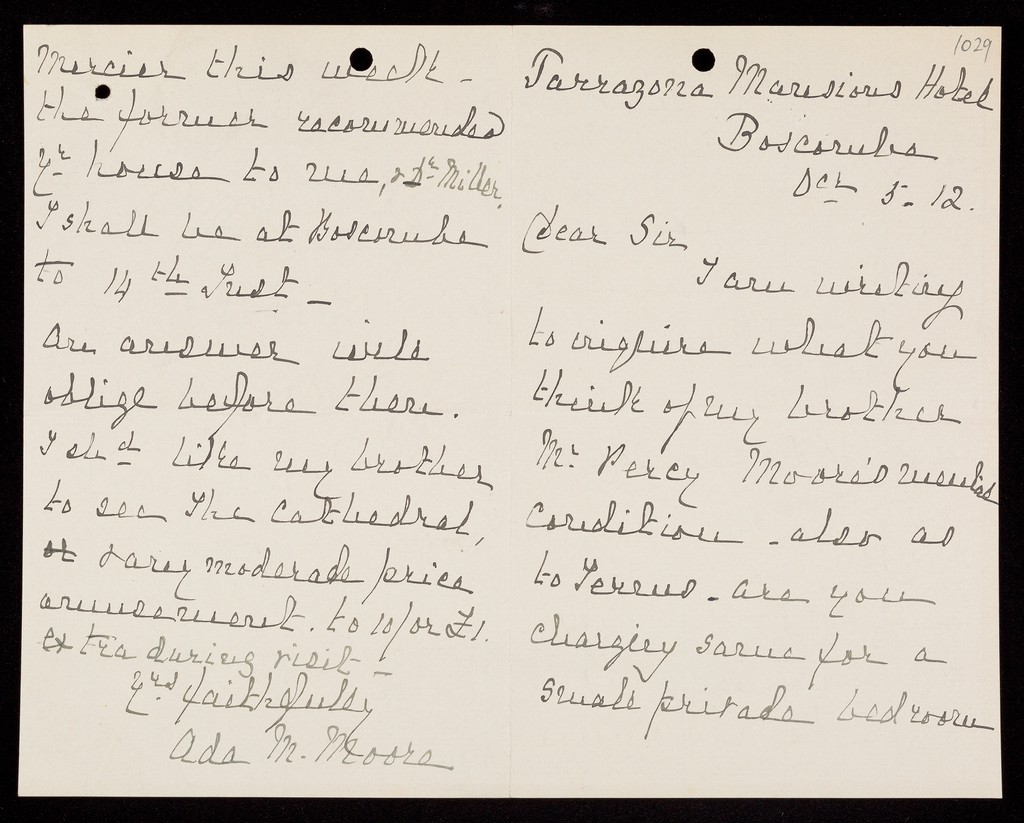 1029
Tarrazona Mansions Hotel
Boscombe
Oct 5. 12.
Dear Sir
I am writing
to inquire what you
think of my brother
Mr Percy Moore's mental
condition - also as
to Terms - are you
charging same for a
small private bedroom
Mercier this week -
the former recommended
yr house to me, & Dr Miller.
I shall be at Boscombe
to 14th Inst -
An answer will
oblige before then.
I shd like my brother
to see the cathedral,
& any moderate price
amusement. to 10/ or £1.
extra during visit -
Yrs faithfully
Ada M. Moore